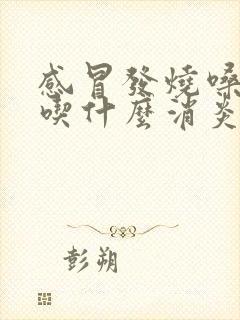 感冒發燒嗓
喫什麼消炎
彭朔